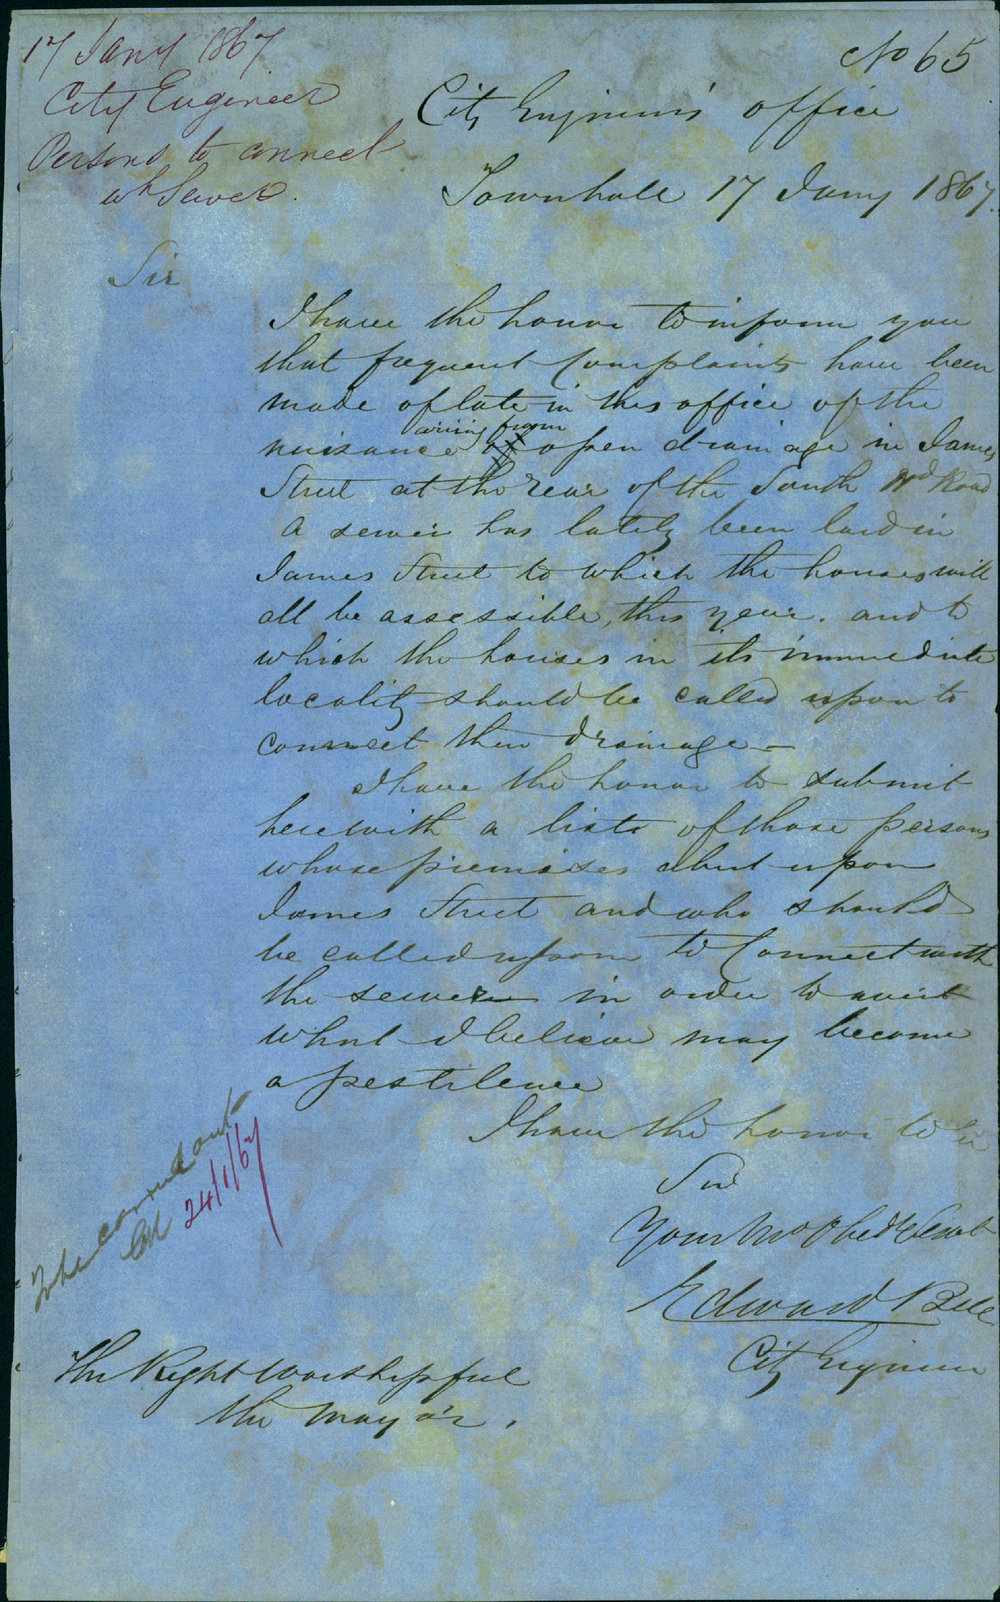 17 Jany 1867.
City Engineer
Persons to connect
wh Sewer.
No 65
City Engineer's office
Townhall 17 Jany 1867.
Sir
I have the honor to inform you
that frequent Complaints have been
made of late in this office of the
nuisance arising from open drainage in James
Street at the rear of the South Hd Road
A sewer has lately been laid in
James Street to which the houses will
all be assessible, this year. and to
which the houses in its immediate
locality should be called upon to
connect their drainage -
I have the honor to submit
herewith a list of those persons
whose premises abut upon
James Street and who should
be called upon to Connect with
the sewer in order to avert
what I believe may become
a pestilence
I have the honor to be
Sir
Your Mo Obedt Servt
Edward Bell
City Engineer
To be carried out
24/1/67
The Right Worshipful
the Mayor.